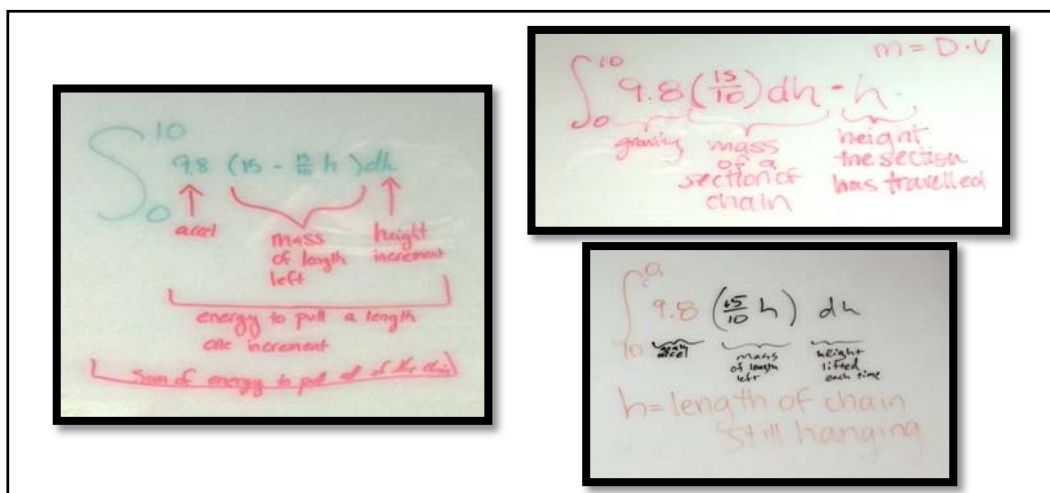 ∫₀¹⁰ 9.8 (15 - 15/10 h) dh
accel
mass
of length
left
height
increment
energy to pull a length
one increment
Sum of energy to pull
m = D·V
∫₀¹⁰ 9.8 (15/10) dh - h
gravity
mass
of a
section of
chain
height
the section
has travelled
9.8 (15/10 h) dh
accel
mass
of length
left
height
lifted
each time
h = length of chain
still hanging